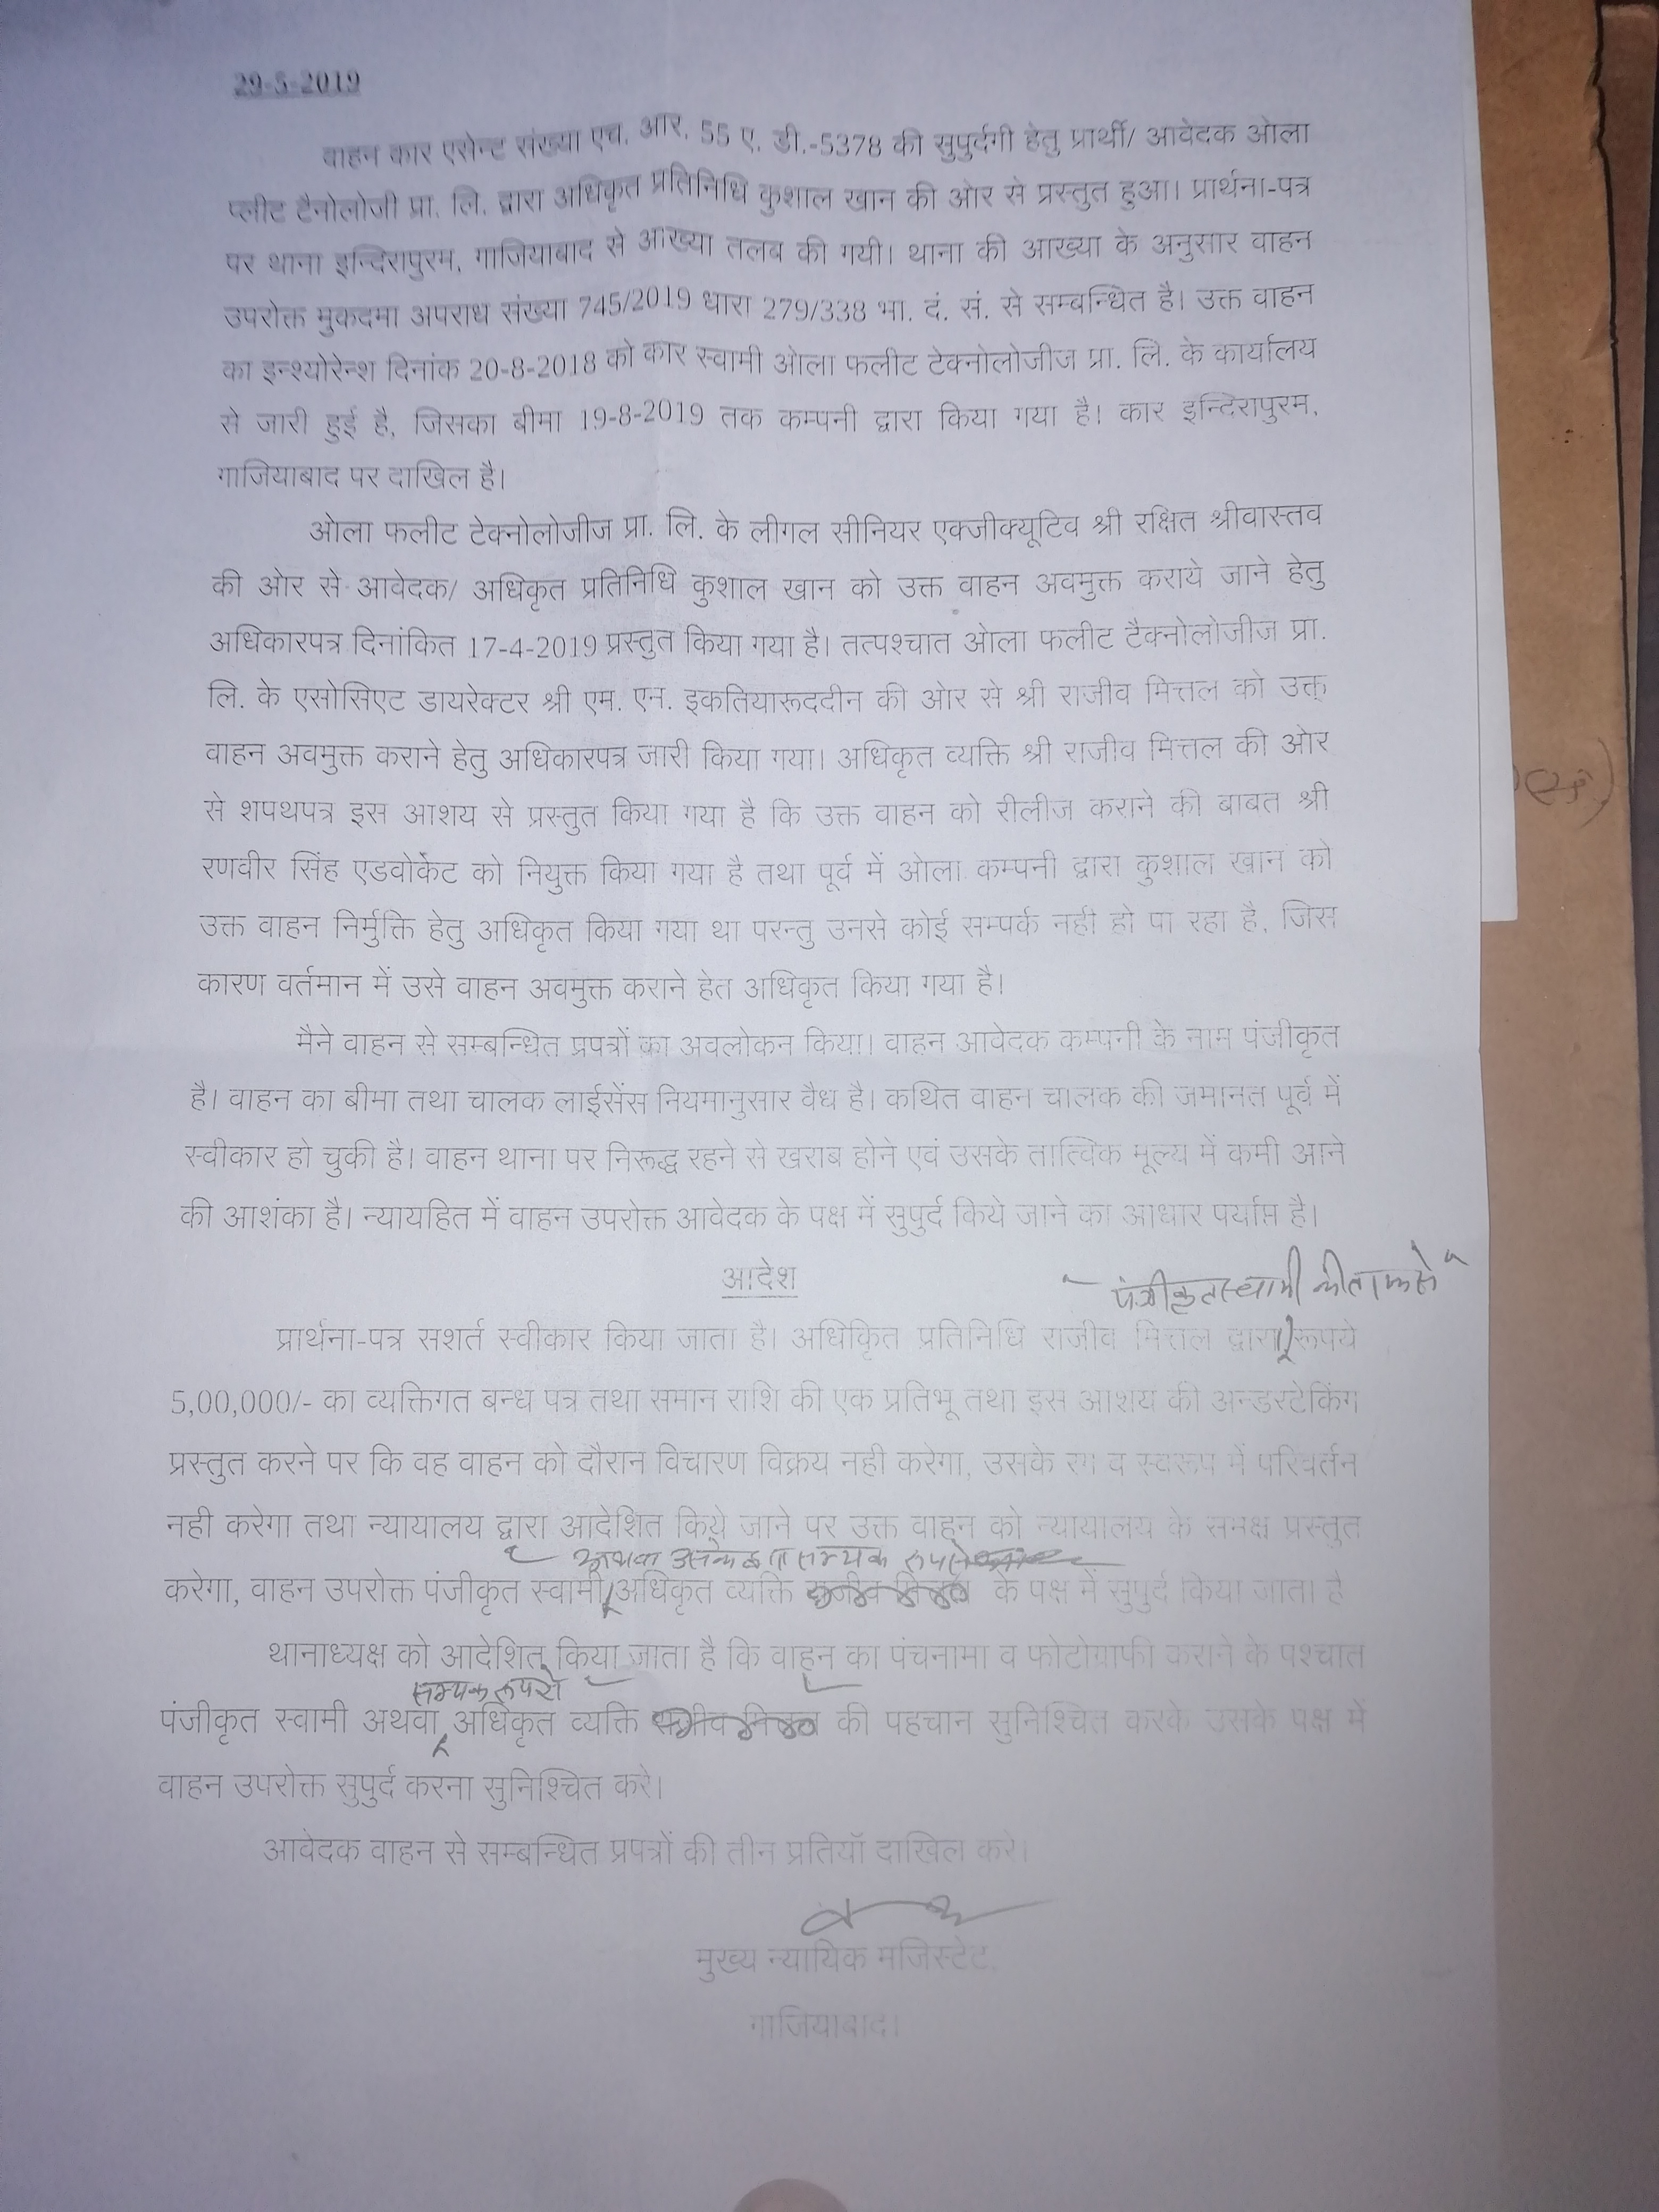 29-5-2019
वाहन कार एसेन्ट संख्या एच. आर. 55 ए. डी.-5378 की सुपुर्दगी हेतु प्रार्थी/ आवेदक ओला
प्लीट टैनोलोजी प्रा. लि. द्वारा अधिकृत प्रतिनिधि कुशाल खान की ओर से प्रस्तुत हुआ। प्रार्थना-पत्र
पर थाना इन्दिरापुरम, गाजियाबाद से आख्या तलब की गयी। थाना की आख्या के अनुसार वाहन
उपरोक्त मुकदमा अपराध संख्या 745/2019 धारा 279/338 भा. दं. सं. से सम्बन्धित है। उक्त वाहन
का इन्श्योरेन्श दिनांक 20-8-2018 को कार स्वामी ओला फलीट टेक्नोलोजीज प्रा. लि. के कार्यालय
से जारी हुई है, जिसका बीमा 19-8-2019 तक कम्पनी द्वारा किया गया है। कार इन्दिरापुरम,
गाजियाबाद पर दाखिल है।
ओला फलीट टेक्नोलोजीज प्रा. लि. के लीगल सीनियर एक्जीक्यूटिव श्री रक्षित श्रीवास्तव
की ओर से आवेदक/ अधिकृत प्रतिनिधि कुशाल खान को उक्त वाहन अवमुक्त कराये जाने हेतु
अधिकारपत्र दिनांकित 17-4-2019 प्रस्तुत किया गया है। तत्पश्चात ओला फलीट टैक्नोलोजीज प्रा.
लि. के एसोसिएट डायरेक्टर श्री एम. एन. इकतियारूददीन की ओर से श्री राजीव मित्तल को उक्त
वाहन अवमुक्त कराने हेतु अधिकारपत्र जारी किया गया। अधिकृत व्यक्ति श्री राजीव मित्तल की ओर
से शपथपत्र इस आशय से प्रस्तुत किया गया है कि उक्त वाहन को रीलीज कराने की बाबत श्री
रणवीर सिंह एडवोकेट को नियुक्त किया गया है तथा पूर्व में ओला कम्पनी द्वारा कुशाल खान को
उक्त वाहन निर्मुक्ति हेतु अधिकृत किया गया था परन्तु उनसे कोई सम्पर्क नही हो पा रहा है, जिस
कारण वर्तमान में उसे वाहन अवमुक्त कराने हेत अधिकृत किया गया है।
मैने वाहन से सम्बन्धित प्रपत्रों का अवलोकन किया। वाहन आवेदक कम्पनी के नाम पंजीकृत
है। वाहन का बीमा तथा चालक लाईसेंस नियमानुसार वैध है। कथित वाहन चालक की जमानत पूर्व में
स्वीकार हो चुकी है। वाहन थाना पर निरूद्ध रहने से खराब होने एवं उसके तात्विक मूल्य में कमी आने
की आशंका है। न्यायहित में वाहन उपरोक्त आवेदक के पक्ष में सुपुर्द किये जाने का आधार पर्याप्त है।
आदेश
पंजीकृत स्वामी की तरफ से
प्रार्थना-पत्र सशर्त स्वीकार किया जाता है। अधिकृित प्रतिनिधि राजीव मित्तल द्वारा रूपये
5,00,000/- का व्यक्तिगत बन्ध पत्र तथा समान राशि की एक प्रतिभू तथा इस आशय की अन्डरटेकिंग
प्रस्तुत करने पर कि वह वाहन को दौरान विचारण विक्रय नही करेगा, उसके रंग व स्वरूप में परिवर्तन
नही करेगा तथा न्यायालय द्वारा आदेशित किये जाने पर उक्त वाहन को न्यायालय के समक्ष प्रस्तुत
अथवा उसके द्वारा सम्यक रूप से
करेगा, वाहन उपरोक्त पंजीकृत स्वामी अधिकृत व्यक्ति के पक्ष में सुपुर्द किया जाता है
थानाध्यक्ष को आदेशित किया जाता है कि वाहन का पंचनामा व फोटोग्राफी कराने के पश्चात
सम्यक रूप से
पंजीकृत स्वामी अथवा अधिकृत व्यक्ति की पहचान सुनिश्चित करके उसके पक्ष में
वाहन उपरोक्त सुपुर्द करना सुनिश्चित करे।
आवेदक वाहन से सम्बन्धित प्रपत्रों की तीन प्रतियॉ दाखिल करे।
मुख्य न्यायिक मजिस्टेट,
गाजियाबाद।